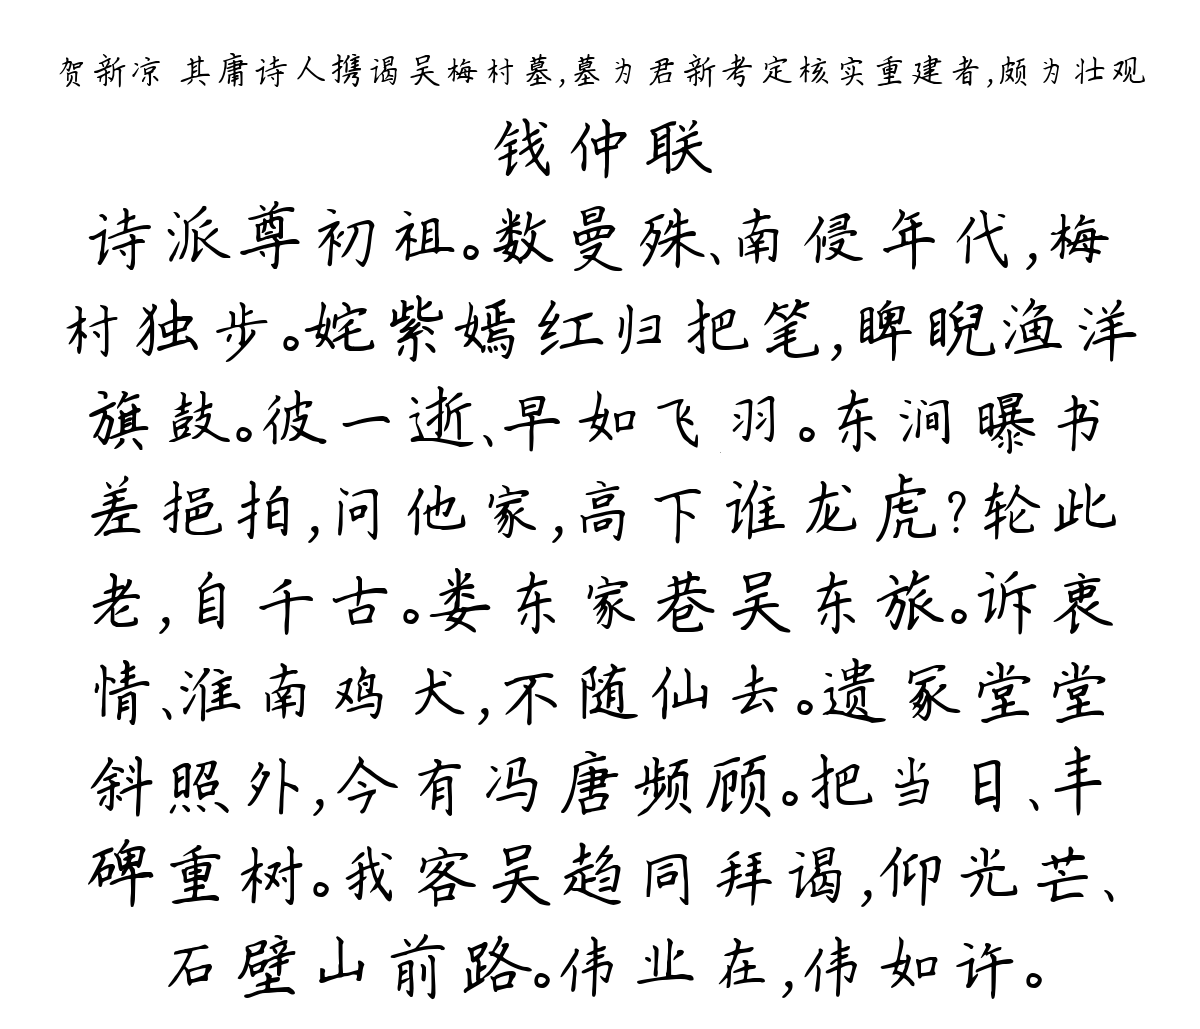 贺新凉 其庸诗人携谒吴梅村墓,墓为君新考定核实重建者,颇为壮观
钱仲联
诗派尊初祖。数曼殊、南侵年代,梅
村独步。姹紫嫣红归把笔,睥睨渔洋
旗鼓。彼一逝、早如飞羽。东涧曝书
差挹拍,问他家,高下谁龙虎?轮此
老,自千古。娄东家巷吴东旅。诉衷
情、淮南鸡犬,不随仙去。遗冢堂堂
斜照外,今有冯唐频顾。把当日、丰
碑重树。我客吴趋同拜谒,仰光芒、
石壁山前路。伟业在,伟如许。